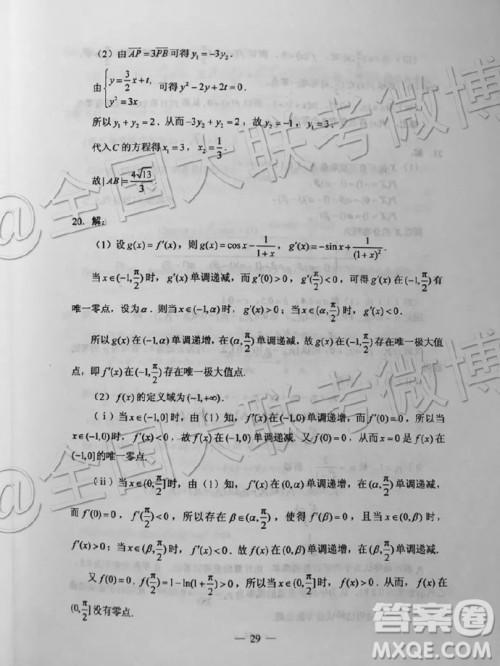 (2) 由 AP = 3PB 可得 y₁ = -3y₂.
由 { y = 3/2 x + t, y² = 3x 可得 y² - 2y + 2t = 0.
所以 y₁ + y₂ = 2. 从而 -3y₂ + y₂ = 2, 故 y₂ = -1, y₁ = 3.
代入 C 的方程得 x₁ = 3, x₂ = 1/3.
故 |AB| = 4√13/3
20. 解:
(1) 设 g(x) = f'(x), 则 g(x) = cos x - 1/(1+x), g'(x) = -sin x + 1/(1+x)².
当 x∈(-1, π/2) 时, g'(x) 单调递减, 而 g'(0) > 0, g'(π/2) < 0, 可得 g'(x) 在 (-1, π/2) 有
唯一零点, 设为 α. 则当 x∈(-1, α) 时, g'(x) > 0; 当 x∈(α, π/2) 时, g'(x) < 0.
所以 g(x) 在 (-1, α) 单调递增, 在 (α, π/2) 单调递减, 故 g(x) 在 (-1, π/2) 存在唯一极大值
点, 即 f'(x) 在 (-1, π/2) 存在唯一极大值点.
(2) f(x) 的定义域为 (-1, +∞).
(i) 当 x∈(-1, 0] 时, 由 (1) 知, f'(x) 在 (-1, 0) 单调递增, 而 f'(0) = 0, 所以当
x∈(-1, 0) 时, f'(x) < 0, 故 f(x) 在 (-1, 0) 单调递减. 又 f(0) = 0, 从而 x = 0 是 f(x)
在 (-1, 0] 的唯一零点.
(ii) 当 x∈(0, π/2] 时, 由 (1) 知, f'(x) 在 (0, α) 单调递增, 在 (α, π/2) 单调递减,
而 f'(0) = 0, f'(π/2) < 0, 所以存在 β∈(α, π/2), 使得 f'(β) = 0, 且当 x∈(0, β) 时,
f'(x) > 0; 当 x∈(β, π/2) 时, f'(x) < 0. 故 f(x) 在 (0, β) 单调递增, 在 (β, π/2) 单调递减.
又 f(0) = 0, f(π/2) = 1 - ln(1 + π/2) > 0, 所以当 x∈(0, π/2] 时, f(x) > 0. 从而, f(x) 在
(0, π/2] 没有零点.
— 29 —
@全国大联考微博
@全国大联考微博
答案圈
MXQE.COM